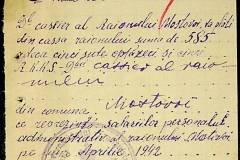 Dl cassier al Raionului Mostovoi, va plăti
din cassa raionului suma de 585
adica cinci sute optzeci și cinci
R.K.K.S. D-lui cassier al raio-
nului
din comuna Mostovoi
ce reprezintă salariilor personalul
administrativ al raionului Mostovoi
pe Aprilie 1942